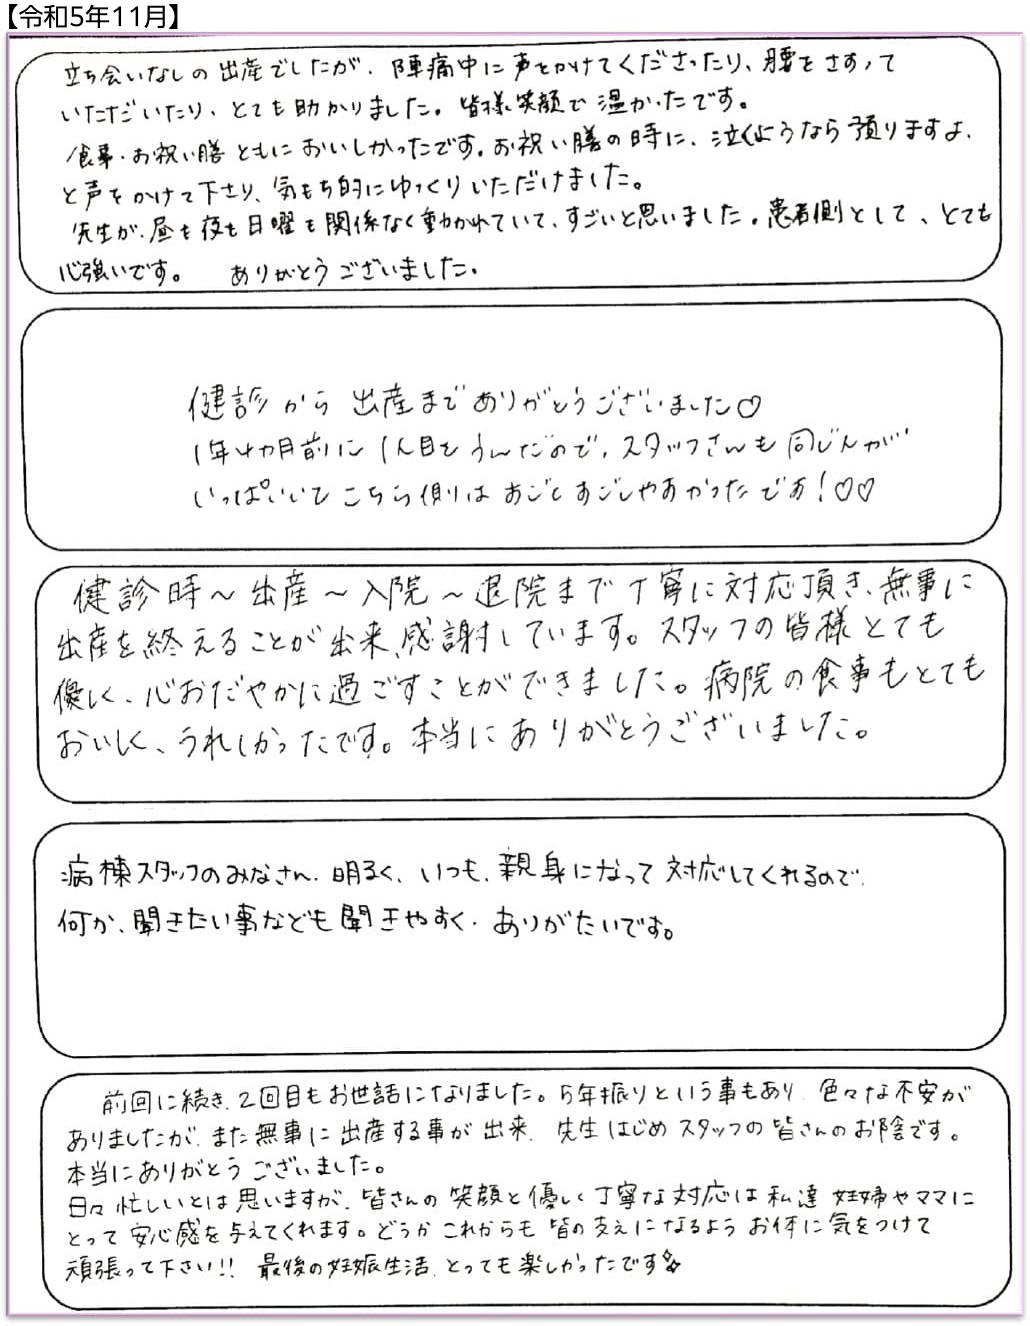 【令和5年11月】
立ち会いなしの出産でしたが、陣痛中に声をかけてくださったり、腰をさすって
いただいたり、とても助かりました。皆様笑顔で温かったです。
食事・お祝い膳ともにおいしかったです。お祝い膳の時に、泣くようなら預りますよ、
と声をかけて下さり、気もち的にゆっくりいただけました。
先生が、昼も夜も日曜も関係なく動かれていて、すごいと思いました。患者側として、とても
心強いです。 ありがとうございました。
健診から出産までありがとうございました♡
1年4ヵ月前に1人目をうんだので、スタッフさんも同じ人が
いっぱいいてこちら側はすごくすごしやすかったです!♡♡
健診時～出産～入院～退院まで丁寧に対応頂き、無事に
出産を終えることが出来、感謝しています。スタッフの皆様とても
優しく、心おだやかに過ごすことができました。病院の食事もとても
おいしく、うれしかったです。本当にありがとうございました。
病棟スタッフのみなさん、明るく、いつも、親身になって対応してくれるので、
何か、聞きたい事なども聞きやすく、ありがたいです。
前回に続き、2回目もお世話になりました。5年振りという事もあり、色々な不安が
ありましたが、また無事に出産する事が出来、先生はじめスタッフの皆さんのお陰です。
本当にありがとうございました。
日々忙しいとは思いますが、皆さんの笑顔と優しく丁寧な対応は私達妊婦やママに
とって安心感を与えてくれます。どうかこれからも皆の支えになるようお体に気をつけて
頑張って下さい!! 最後の妊娠生活、とっても楽しかったです